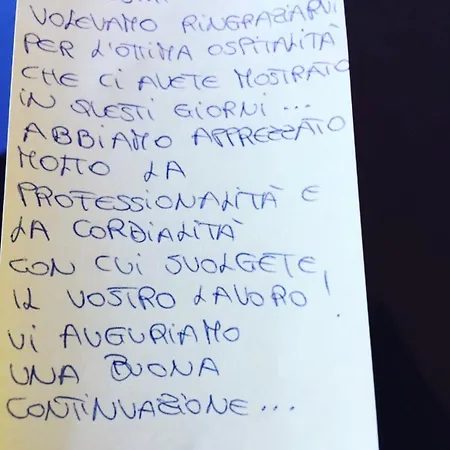 VOLEVAMO RINGRAZIARVI
PER L'OTTIMA OSPITALITÀ
CHE CI AVETE MOSTRATO
IN QUESTI GIORNI...
ABBIAMO APPREZZATO
MOLTO LA
PROFESSIONALITÀ E
LA CORDIALITÀ
CON CUI SVOLGETE
IL VOSTRO LAVORO!
VI AUGURIAMO
UNA BUONA
CONTINUAZIONE...